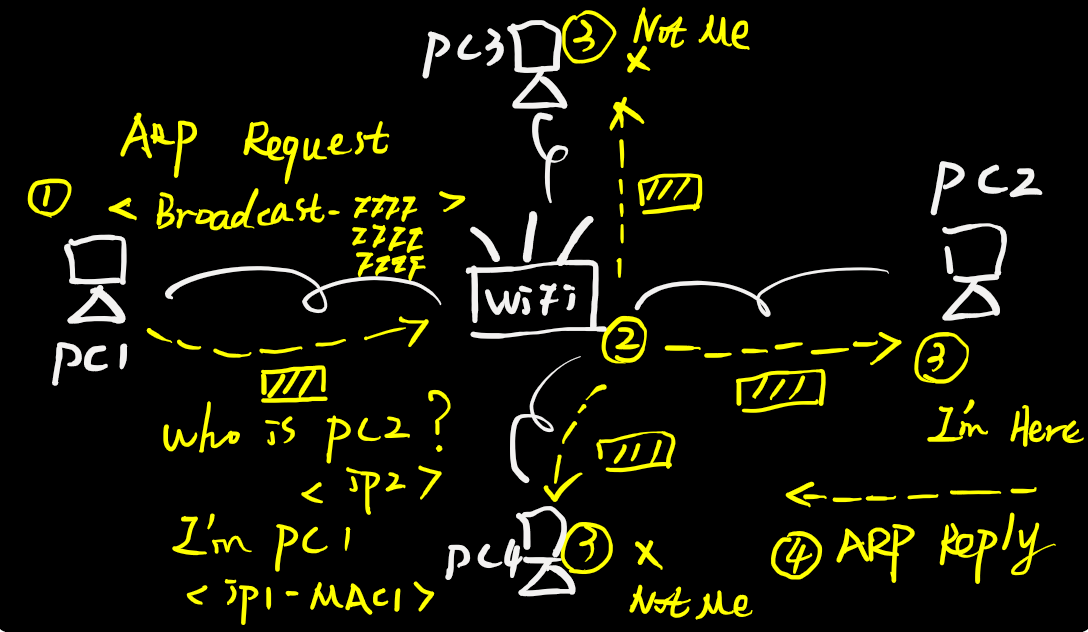 PC3
③ Not Me
×
ARP Request
①
< Broadcast- FFFF >
FFFF
FFFF
PC2
WiFi
PC1
②
③
who is PC2 ?
< ip2 >
I'm Here
I'm PC1
< ip1-MAC1 >
PC4
③ ×
Not Me
④ ARP Reply